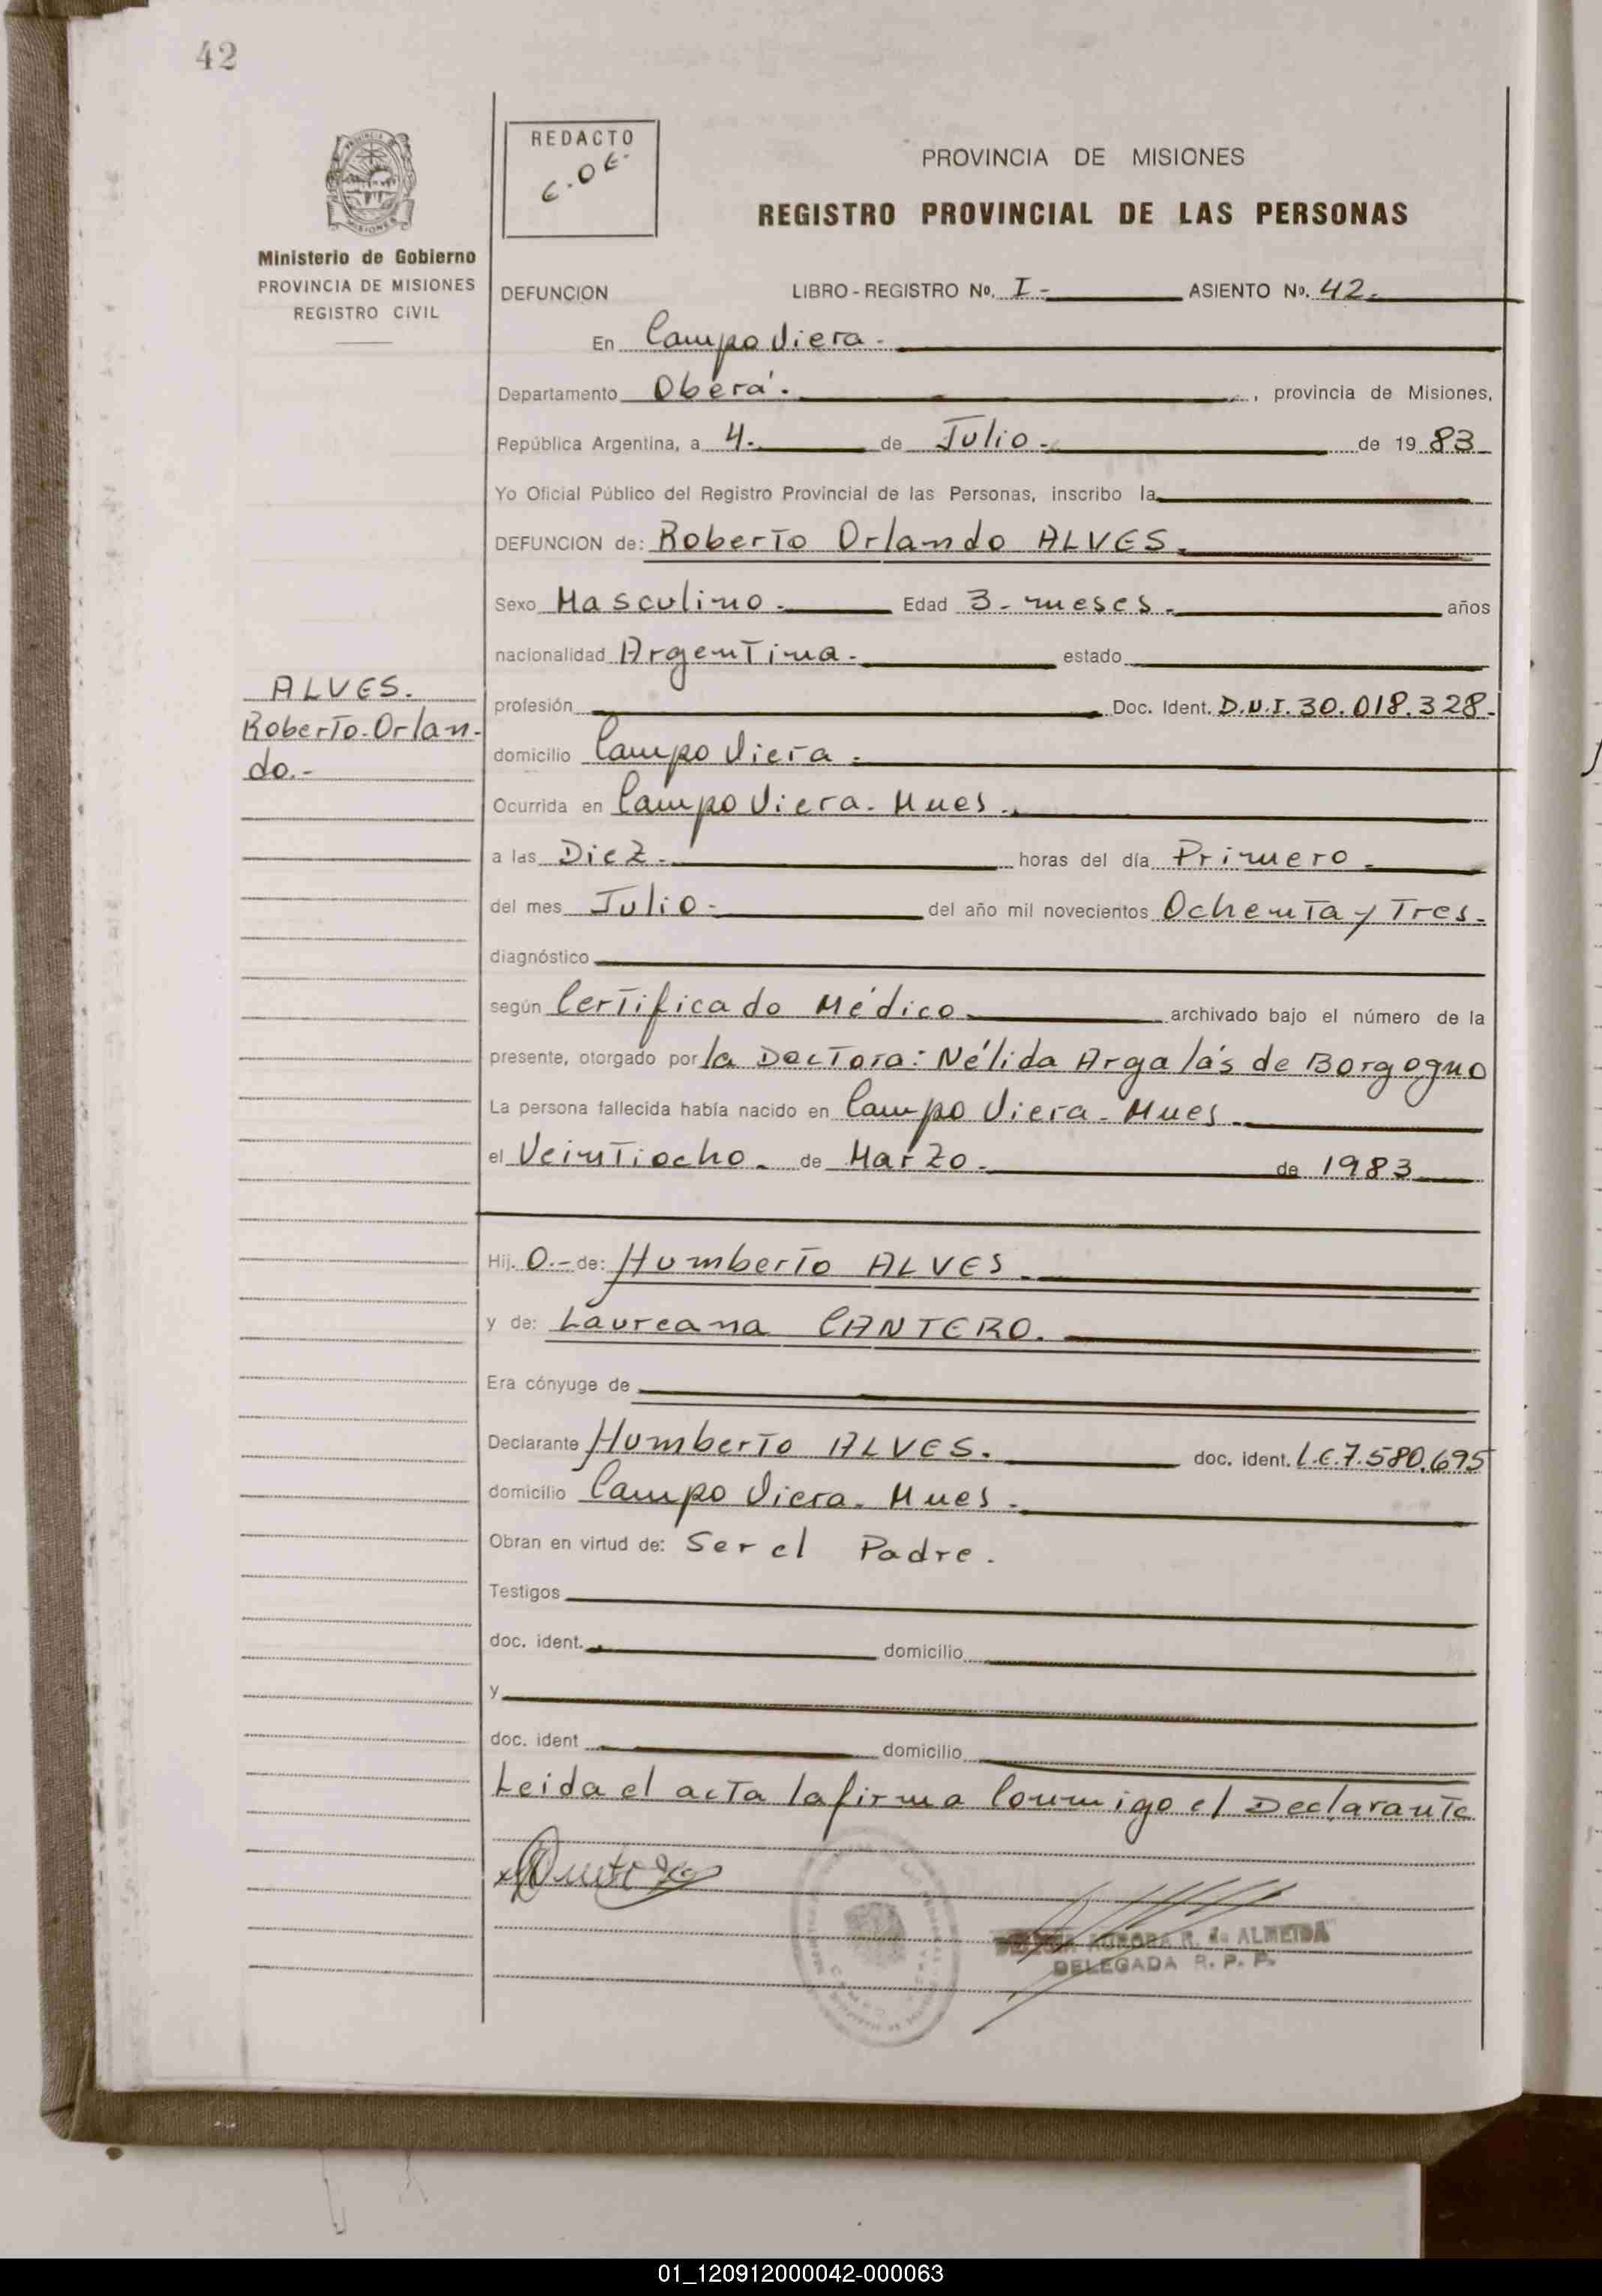 42
PROVINCIA DE MISIONES
REGISTRO PROVINCIAL DE LAS PERSONAS
Ministerio de Gobierno
PROVINCIA DE MISIONES
REGISTRO CIVIL
REDACTO
DEFUNCION LIBRO - REGISTRO Nº. I - ASIENTO Nº. 42.
En Campo Viera -
Departamento Oberá. , provincia de Misiones,
República Argentina, a 4. de Julio - de 19 83
Yo Oficial Público del Registro Provincial de las Personas, inscribo la
DEFUNCION de: Roberto Orlando ALVES.
Sexo Masculino. Edad 3 - meses. años
nacionalidad Argentina - estado
ALVES.
Roberto Orlan-
do.-
profesión Doc. Ident. D.N.I. 30.018.328.
domicilio Campo Viera -
Ocurrida en Campo Viera - Mnes.
a las Diez - horas del día Primero -
del mes Julio - del año mil novecientos Ochenta y Tres -
diagnóstico
según Certificado Médico archivado bajo el número de la
presente, otorgado por la Doctora: Nélida Argalás de Borgogno
La persona fallecida había nacido en Campo Viera - Mnes
el Veintiocho. de Marzo - de 1983
Hij. O.- de: Humberto ALVES
y de: Laureana CANTERO.
Era cónyuge de
Declarante Humberto ALVES. doc. ident. L.E. 7.580.695
domicilio Campo Viera - Mnes -
Obran en virtud de: Ser el Padre.
Testigos
doc. ident. domicilio
y
doc. ident domicilio
Leida el acta la firma Conmigo el Declarante
AURORA R. de ALMEIDA
DELEGADA R. P. P.
01_120912000042-000063